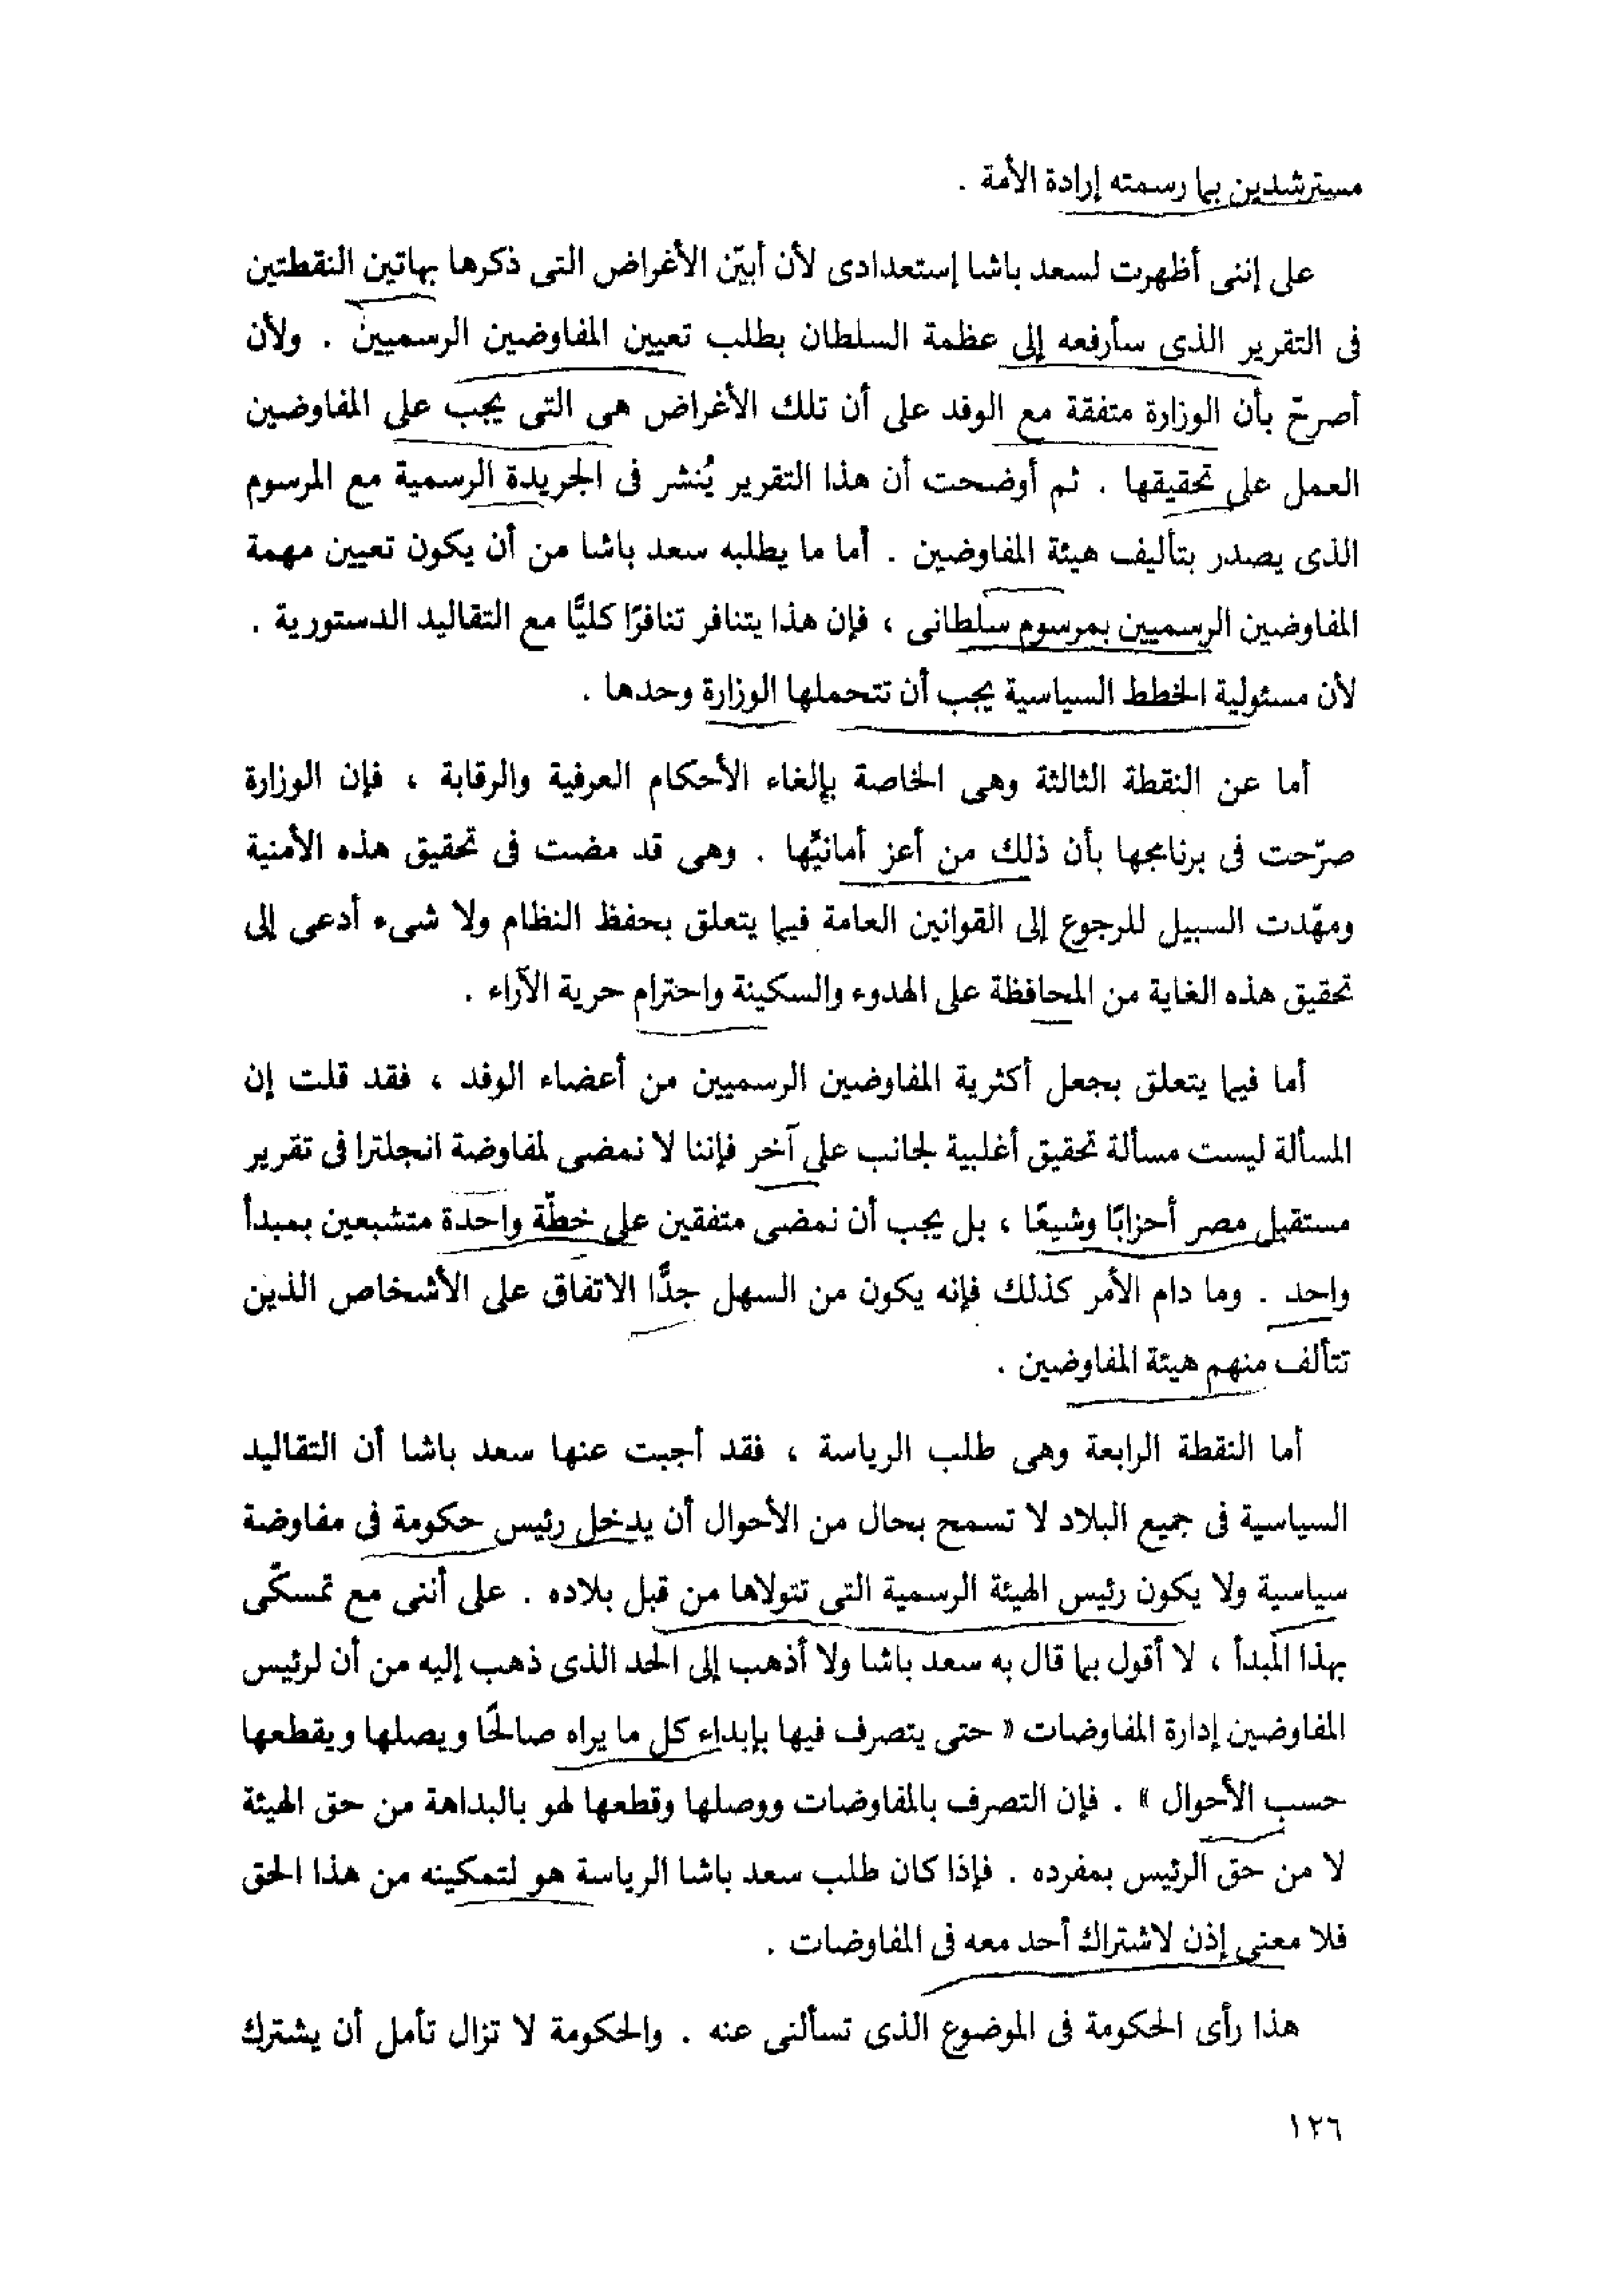 مسترشدين بما رسمته إرادة الأمة .
على إننى أظهرت لسعد باشا إستعدادى لأن أبيّن الأغراض التى ذكرها بهاتين النقطتين
فى التقرير الذى سأرفعه إلى عظمة السلطان بطلب تعيين المفاوضين الرسميين . ولأن
أصرحّ بأن الوزارة متفقة مع الوفد على أن تلك الأغراض هى التى يجب على المفاوضين
العمل على تحقيقها . ثم أوضحت أن هذا التقرير يُنشر فى الجريدة الرسمية مع المرسوم
الذى يصدر بتأليف هيئة المفاوضين . أما ما يطلبه سعد باشا من أن يكون تعيين مهمة
المفاوضين الرسميين بمرسوم سلطانى ، فإن هذا يتنافر تنافرًا كليًّا مع التقاليد الدستورية .
لأن مسئولية الخطط السياسية يجب أن تتحملها الوزارة وحدها .
أما عن النقطة الثالثة وهى الخاصة بإلغاء الأحكام العرفية والرقابة ، فإن الوزارة
صرّحت فى برنامجها بأن ذلك من أعز أمانيّها . وهى قد مضت فى تحقيق هذه الأمنية
ومهّدت السبيل للرجوع إلى القوانين العامة فيما يتعلق بحفظ النظام ولا شىء أدعى إلى
تحقيق هذه الغاية من المحافظة على الهدوء والسكينة واحترام حرية الآراء .
أما فيما يتعلق بجعل أكثرية المفاوضين الرسميين من أعضاء الوفد ، فقد قلت إن
المسألة ليست مسألة تحقيق أغلبية لجانب على آخر فإننا لا نمضى لمفاوضة انجلترا فى تقرير
مستقبل مصر أحزابًا وشيعًا ، بل يجب أن نمضى متفقين على خطّة واحدة متشبعين بمبدأ
واحد . وما دام الأمر كذلك فإنه يكون من السهل جدًّا الاتفاق على الأشخاص الذين
تتألف منهم هيئة المفاوضين .
أما النقطة الرابعة وهى طلب الرياسة ، فقد أجبت عنها سعد باشا أن التقاليد
السياسية فى جميع البلاد لا تسمح بحال من الأحوال أن يدخل رئيس حكومة فى مفاوضة
سياسية ولا يكون رئيس الهيئة الرسمية التى تتولاها من قبل بلاده . على أننى مع تمسكّى
بهذا المبدأ ، لا أقول بما قال به سعد باشا ولا أذهب إلى الحد الذى ذهب إليه من أن لرئيس
المفاوضين إدارة المفاوضات « حتى يتصرف فيها بإبداء كل ما يراه صالحًا ويصلها ويقطعها
حسب الأحوال » . فإن التصرف بالمفاوضات ووصلها وقطعها لهو بالبداهة من حق الهيئة
لا من حق الرئيس بمفرده . فإذا كان طلب سعد باشا الرياسة هو لتمكينه من هذا الحق
فلا معنى إذن لاشتراك أحد معه فى المفاوضات .
هذا رأى الحكومة فى الموضوع الذى تسألنى عنه . والحكومة لا تزال تأمل أن يشترك
١٢٦